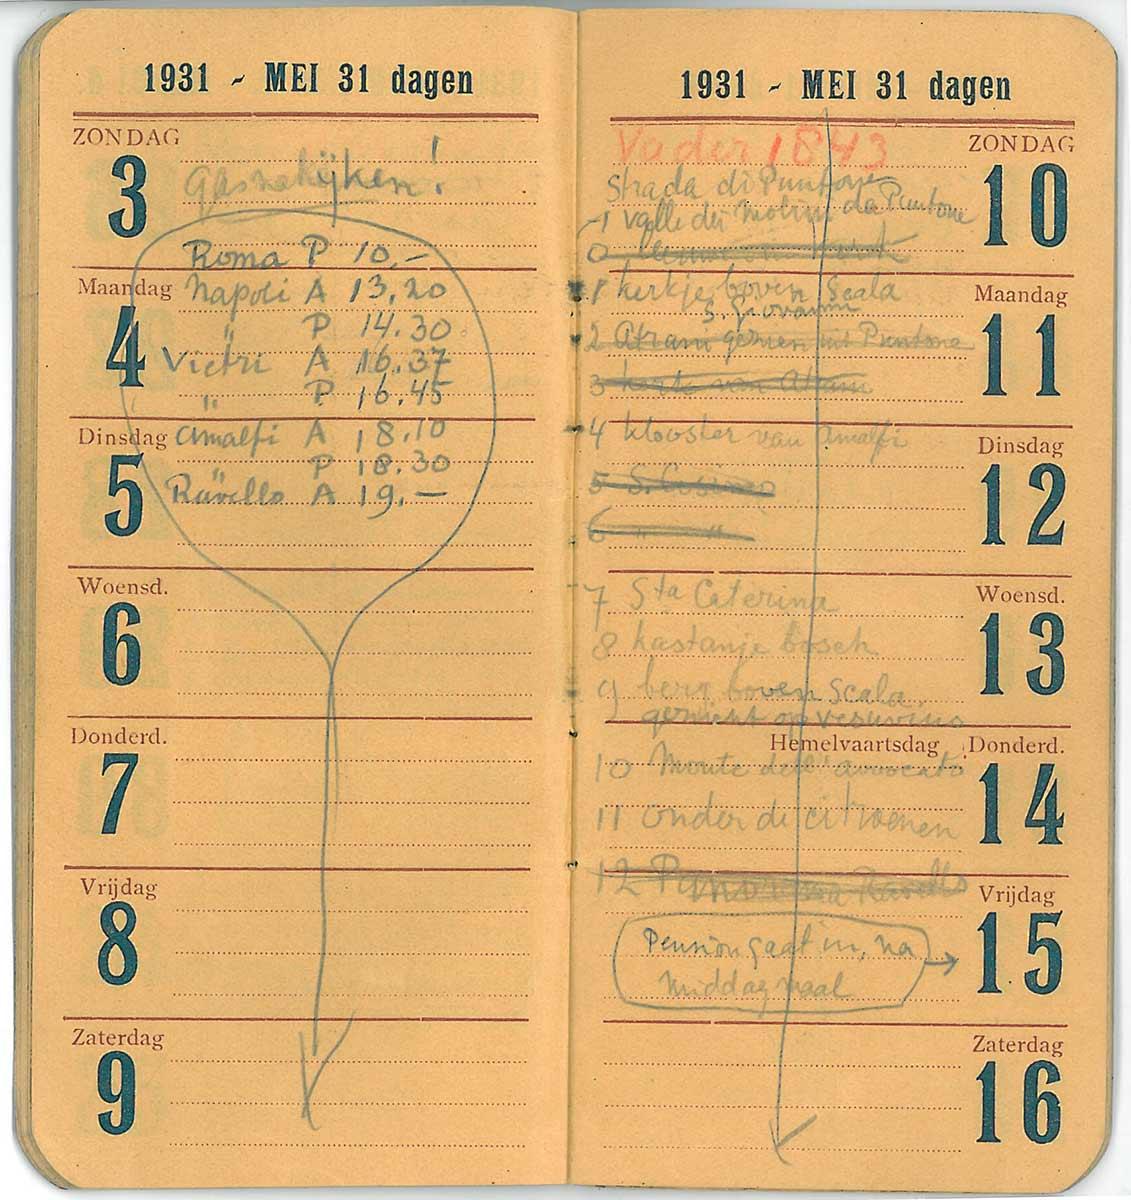 1931 - MEI 31 dagen
ZONDAG
3
Gasnakijken!
Roma P 10,-
Maandag
4
Napoli A 13,20
" P 14.30
Vietri A 16.37
" P 16.45
Dinsdag
5
Amalfi A 18.10
" P 18.30
Ravello A 19,-
Woensd.
6
Donderd.
7
Vrijdag
8
Zaterdag
9
1931 - MEI 31 dagen
ZONDAG
10
Vader 1843
Strada di Puntone
-1 valle dei Molini da Puntone
0
Maandag
11
1 kerkje boven Scala
S. Giovanni
2 Atrani gezien uit Puntone
3 kerk van Atrani
Dinsdag
12
4 klooster van Amalfi
5 S. Cosimo
6 " "
Woensd.
13
7 Sta Caterina
8 kastanje bosch
9 berg boven Scala,
gezicht op vesuvius
Hemelvaartsdag Donderd.
14
10 Monte dell'avvocato
11 onder de citroenen
12 Panorama Ravello
Vrijdag
15
Pension gaat in, na →
middagmaal
Zaterdag
16